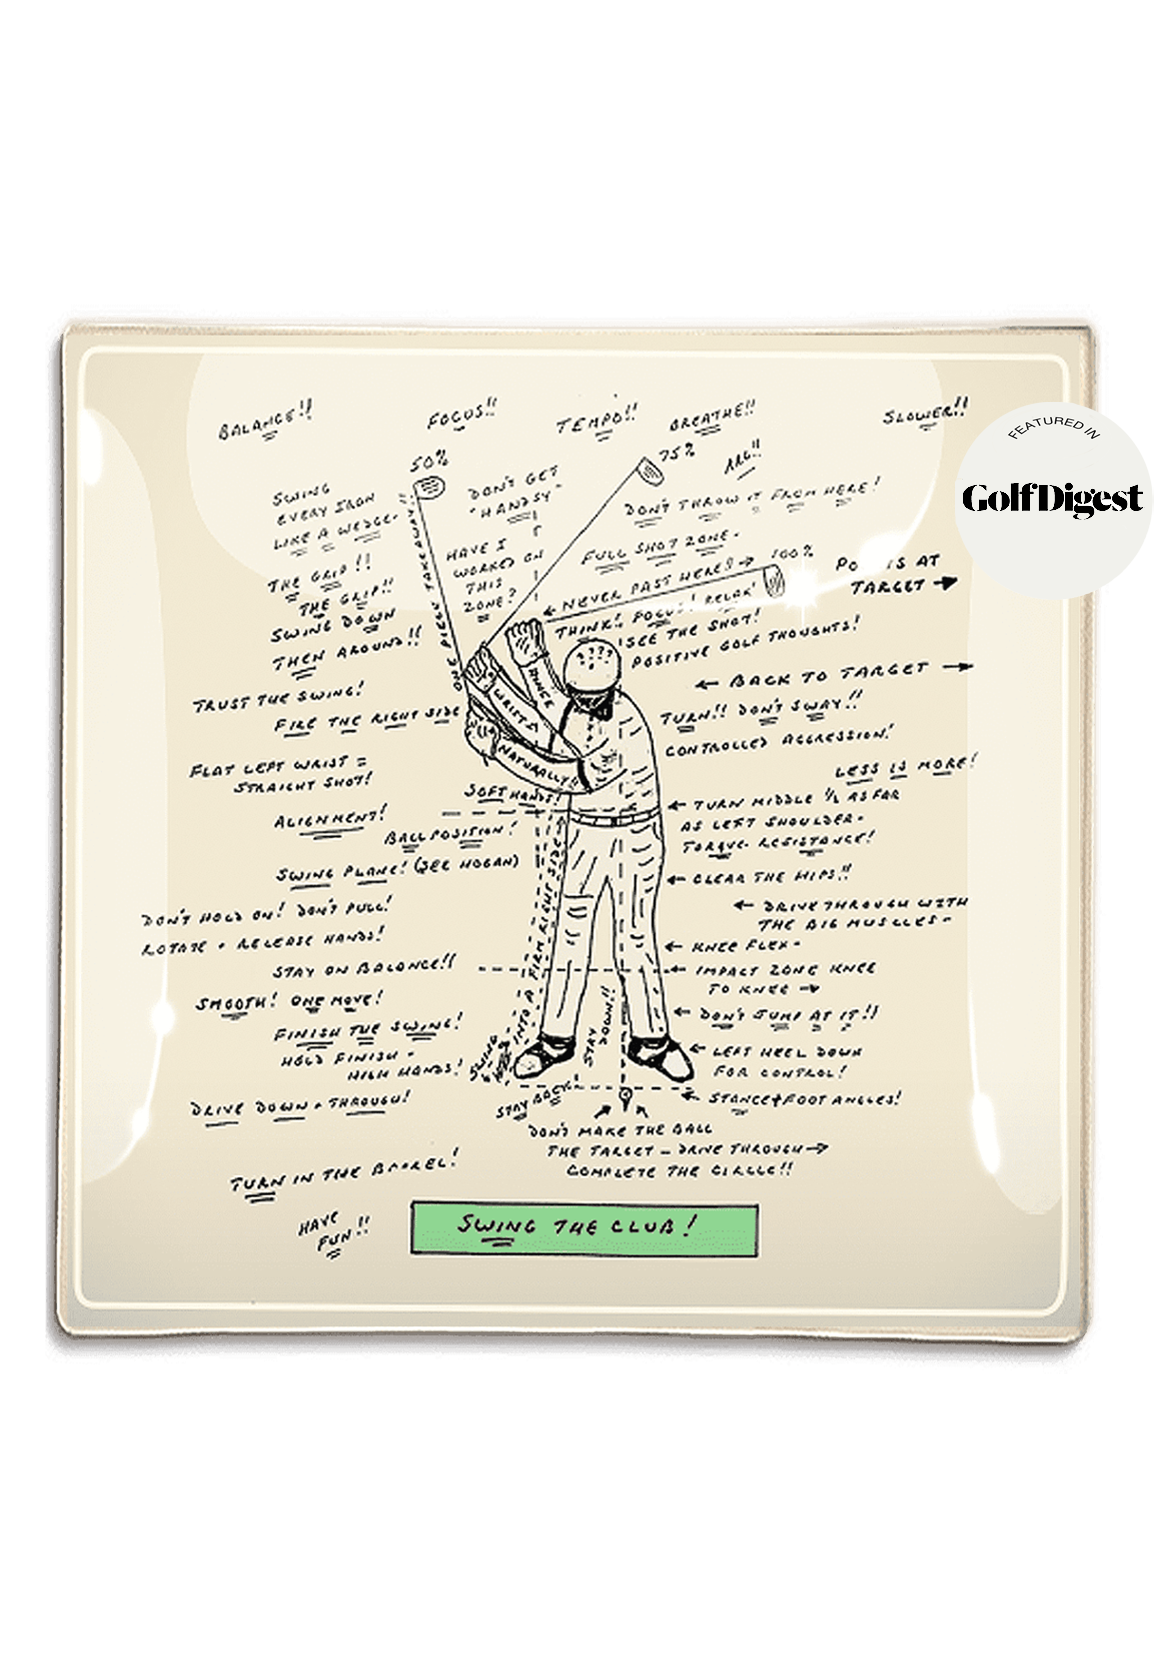 BALANCE!!
FOCUS!!
TEMPO!!
BREATHE!!
SLOWER!!
FEATURED IN
GolfDigest
50%
75%
ARG!!
SWING
EVERY IRON
LIKE A WEDGE-
DON'T GET
"HANDSY"
DON'T THROW IT FROM HERE!
ONE PIECE TAKEAWAY!!
HAVE I
WORKED ON
THIS
ZONE?
FULL SHOT ZONE-
THE GRIP!!
THE GRIP!!
← NEVER PAST HERE!! → 100%
AT
TARGET →
SWING DOWN
THEN AROUND!!
THINK! FOCUS! RELAX!
SEE THE SHOT!
POSITIVE GOLF THOUGHTS!
????
← BACK TO TARGET →
HINGE
WRISTS
NATURALLY!!
TRUST THE SWING!
FIRE THE RIGHT SIDE
TURN!! DON'T SWAY!!
CONTROLLED AGGRESSION!
FLAT LEFT WRIST =
STRAIGHT SHOT!
LESS IS MORE!
SOFT HANDS!
← TURN MIDDLE ½ AS FAR
AS LEFT SHOULDER-
TORQUE- RESISTANCE!
ALIGNMENT!
BALL POSITION!
SWING PLANE! (SEE HOGAN)
← CLEAR THE HIPS!!
DON'T HOLD ON! DON'T PULL!
ROTATE + RELEASE HANDS!
← DRIVE THROUGH WITH
THE BIG MUSCLES-
← KNEE FLEX-
STAY ON BALANCE!!
← IMPACT ZONE KNEE
TO KNEE →
SMOOTH! ONE MOVE!
FINISH THE SWING!
HOLD FINISH -
HIGH HANDS!
SWING
INTO A FIRM RIGHT SIDE
STAY
DOWN!!
← DON'T JUMP AT IT!!
← LEFT HEEL DOWN
FOR CONTROL!
DRIVE DOWN + THROUGH!
STAY BACK!
← STANCE + FOOT ANGLES!
DON'T MAKE THE BALL
THE TARGET - DRIVE THROUGH →
COMPLETE THE CIRCLE!!
TURN IN THE BARREL!
HAVE
FUN!!
SWING THE CLUB!